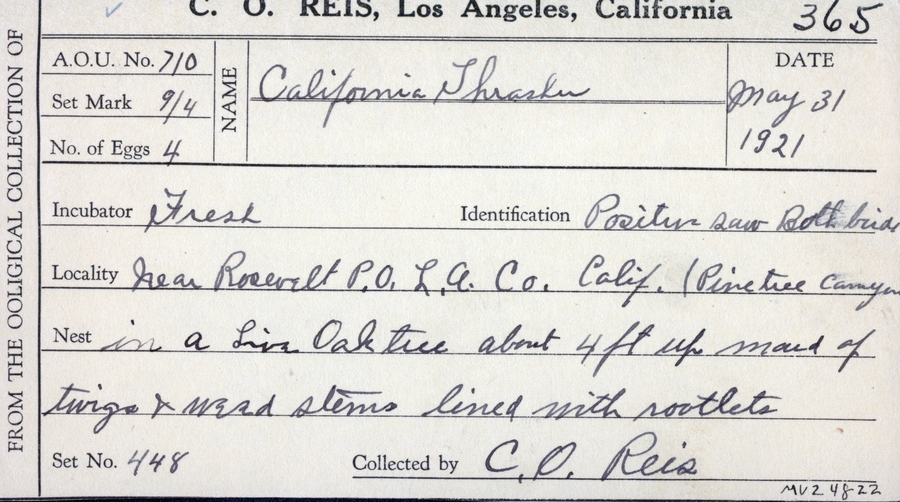 C. O. REIS, Los Angeles, California 365
FROM THE OOLIGICAL COLLECTION OF
A.O.U. No. 710
Set Mark 9/4
No. of Eggs 4
NAME California Thrasher
DATE
May 31
1921
Incubator Fresh Identification Positive saw Both birds
Locality Near Rosevelt P.O. L.A. Co. Calif. (Pinetree Canyon
Nest in a Live Oak tree about 4 ft up maed of
twigs & weed stems lined with rootlets
Set No. 448 Collected by C. O. Reis
MVZ 48-22